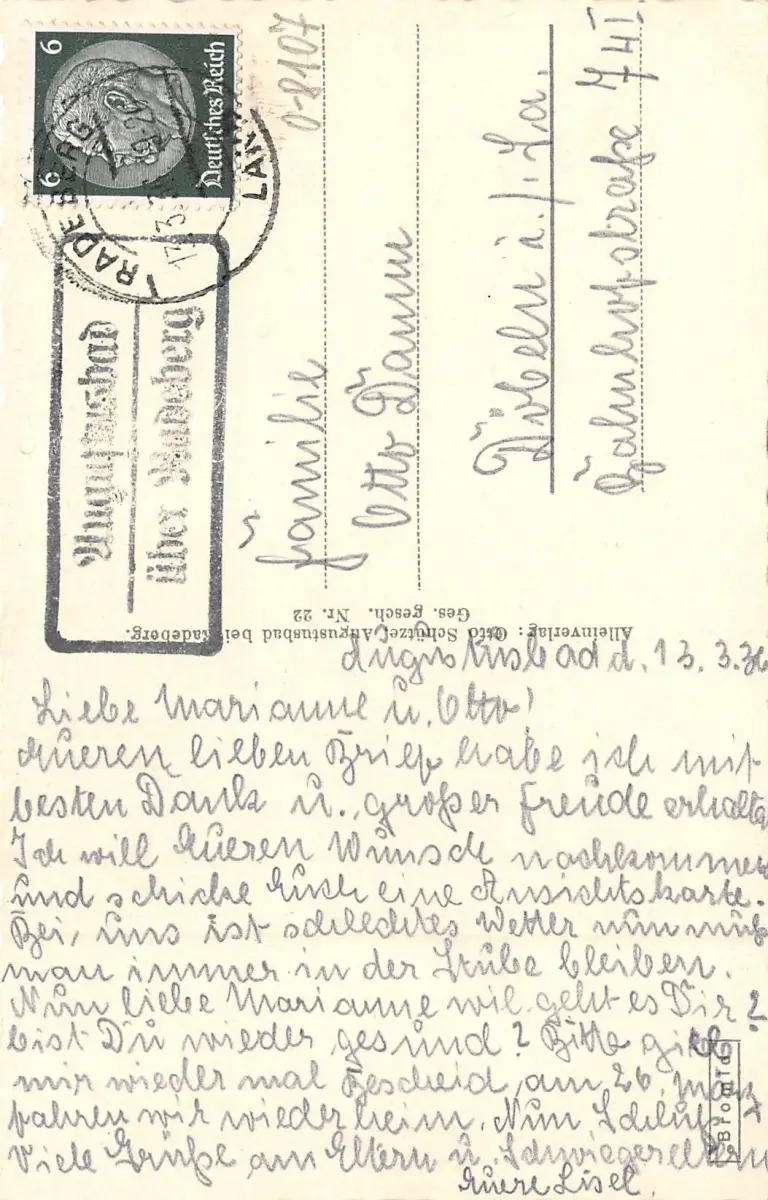 6 6
Deutsches Reich
RADEBERG
LAND
0-8107
Augustusbad
über Radeberg
Familie
Otto Damm
Döbeln i./Sa.
Bahnhofstraße 74 I
Alleinverlag: Otto Schützel, Augustusbad bei Radeberg.
Ges. gesch. Nr. 22
Augustusbad d. 13.3.36
Liebe Marianne u. Otto!
Aueren lieben Brief habe ich mit
besten Dank u. großer Freude erhalten
Ich will Eueren Wunsch nachkommen
und schicke Euch eine Ansichtskarte.
Bei uns ist schlechtes Wetter nun muß
man immer in der Stube bleiben.
Nun liebe Marianne wie geht es Dir?
bist Du wieder gesund? Bitte gieb
mir wieder mal Bescheid, am 26. März
fahren wir wieder heim. Nun Schluß
Viele Grüße an Eltern u. Schwiegereltern
Auere Lisel.